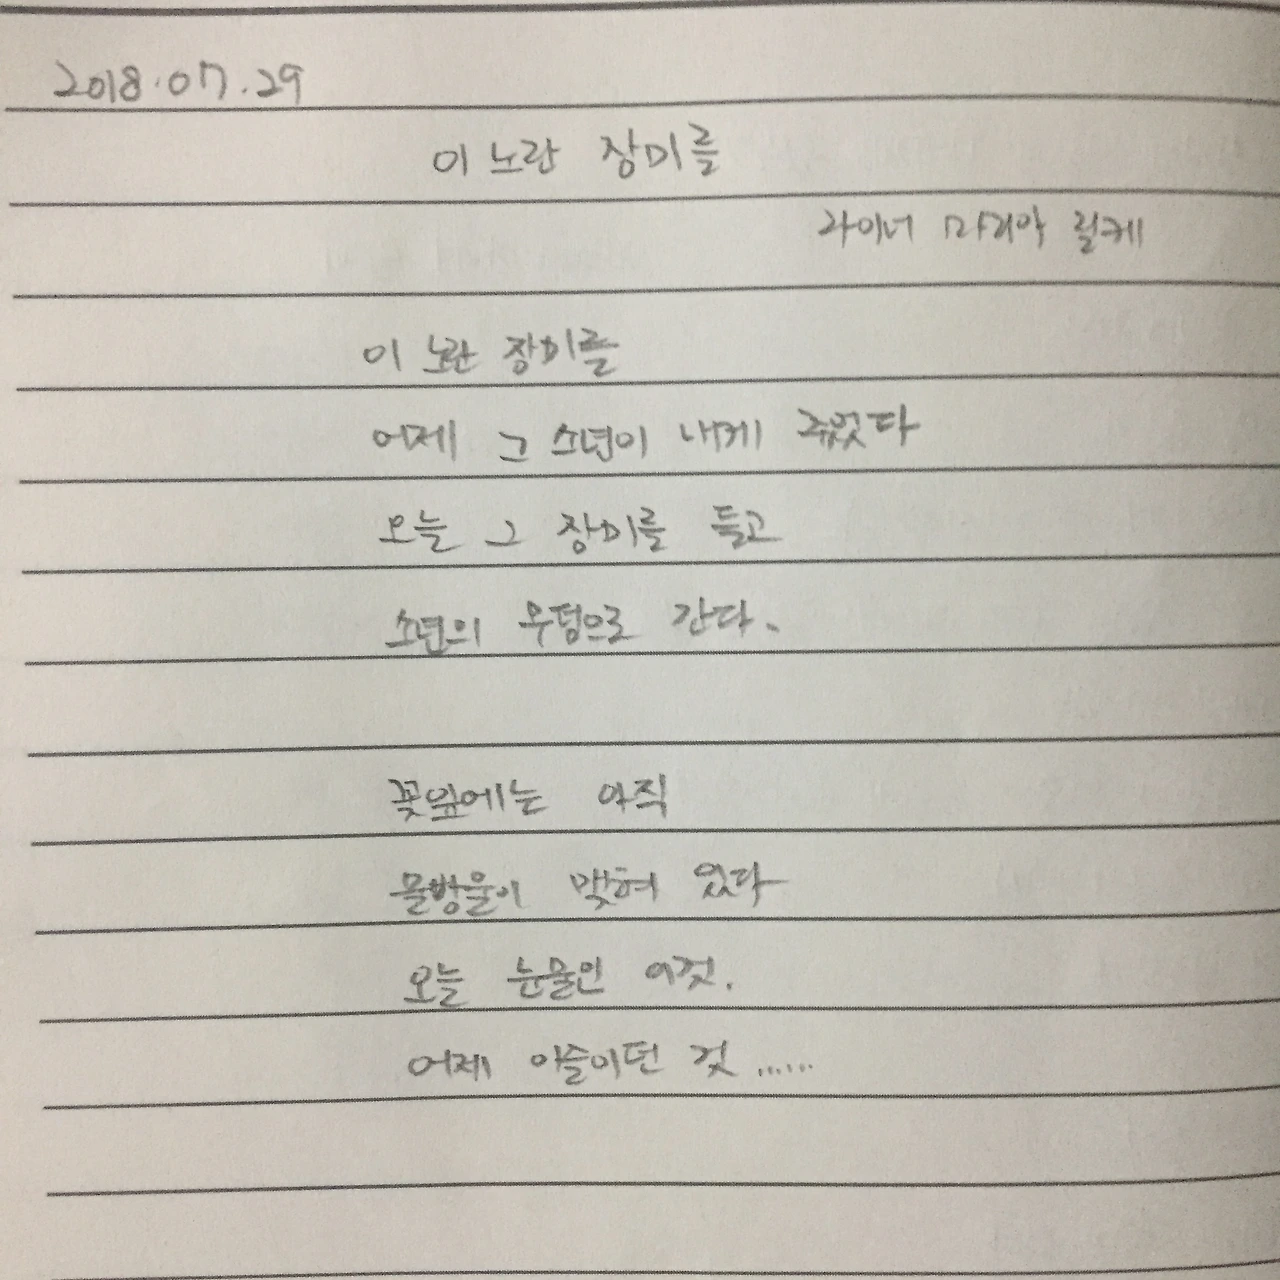 2018.07.29
이 노란 장미를
라이너 마리아 릴케
이 노란 장미를
어제 그 소년이 내게 주었다
오늘 그 장미를 들고
소년의 무덤으로 간다.
꽃잎에는 아직
물방울이 맺혀 있다
오늘 눈물인 이것.
어제 이슬이던 것 ......